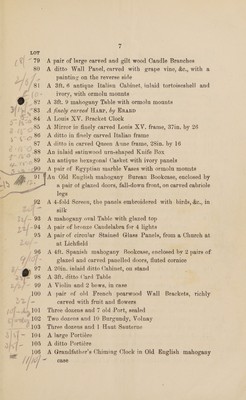 7
LOT
79 A pair of large carved and gilt wood Candle Branches
80 A ditto Wall Panel, carved with grape vine, &c., with a
painting on the reverse side
81 A 3ft. 8 antique Italian Cabinet, inlaid tortoiseshell and
ivory, with ormolu mounts
82 A 3ft. 9 mahogany Table with ormolu mounts
83 A finely carved HARP, by ERARD
84 A Louis XV. Bracket Clock
85 A Mirror in finely carved Louis XV. frame, 37in. by 26
86 A ditto in finely carved Italian frame
87 A ditto in carved Queen Anne frame, 28in. by 16
88 An inlaid satinwood urn-shaped Knife Box
89 An antique hexagonal Casket with ivory panels
90 A pair of Egyptian marble Vases with ormolu mounts
91 An Old English mahogany Bureau Bookcase, enclosed by
a pair of glazed doors, fall-down front, on carved cabriole
legs
92 A 4-fold Screen, the panels embroidered with birds, &c., in
silk
93 A mahogany oval Table with glazed top
94 A pair of bronze Candelabra for 4 lights
95 A pair of circular Stained Glass Panels, from a Church at
at Lichfield
96 A 4ft. Spanish mahogany Bookcase, enclosed by 2 pairs of
glazed and carved panelled doors, fluted cornice
97 A 26in. inlaid ditto Cabinet, on stand
98 A 3ft. ditto Card Table
99 A Violin and 2 bows, in case
100 A pair of old French pearwood Wall Brackets, richly
carved with fruit and flowers
101 Three dozens and 7 old Port, sealed
102 Two dozens and 10 Burgundy, Volnay
103 Three dozens and 1 Haut Sauterne
104 A large Portière
105 A ditto Portière
106 A Grandfather's Chiming Clock in Old English mahogany
case